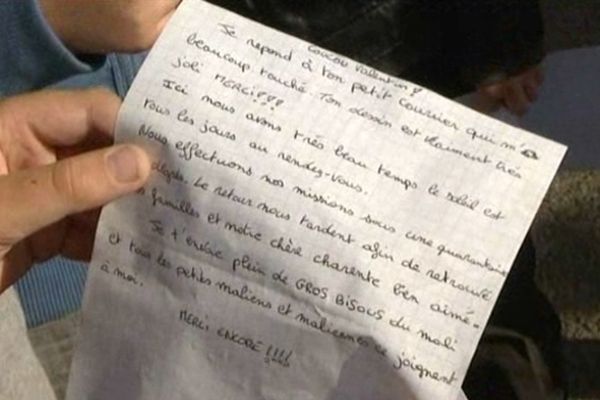 Coucou Valentin !
Je repond à ton petit courrier qui m'a
beaucoup touché. Ton dessin est vraiment très
joli MERCI !!!
Ici nous avons très beau temps le soleil est
tous les jours au rendez-vous.
Nous effectuons nos missions sous une quarantaine
degrés. Le retour nous tardent afin de retrouvé
familles et notre chère charente bien aimé.
Je t'envoie plein de GROS BISOUS du mali
et tous les petits maliens et maliennes ce joignent
à moi.
MERCI ENCORE !!!!